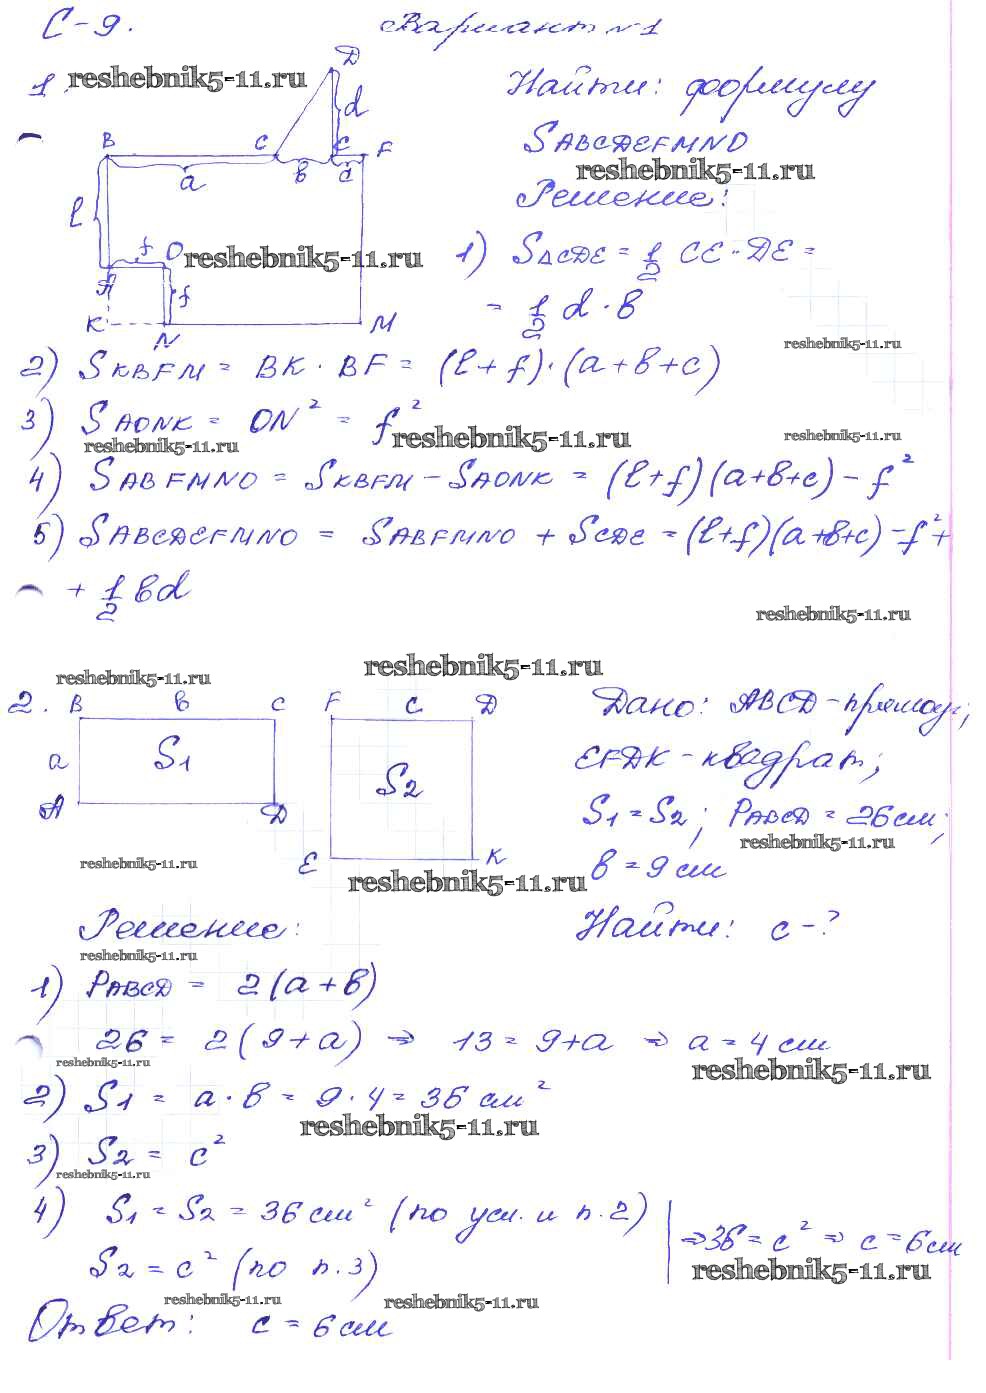 С-9. Вариант №1
1. reshebnik5-11.ru
D
d
B C E F
a b c
l
f O
A f
K N M
reshebnik5-11.ru
Найти: формулу
SABCDEFMNO
reshebnik5-11.ru
Решение:
1) S△CDE = 1/2 CE · DE =
= 1/2 d · b
reshebnik5-11.ru
2) SKBFM = BK · BF = (l + f) · (a + b + c)
3) SAONK = ON² = f²
reshebnik5-11.ru reshebnik5-11.ru reshebnik5-11.ru
4) SABFMNO = SKBFM − SAONK = (l+f)(a+b+c) − f²
5) SABCDEFMNO = SABFMNO + SCDE = (l+f)(a+b+c) − f² +
+ 1/2 bd
reshebnik5-11.ru
reshebnik5-11.ru
reshebnik5-11.ru
2. B b C F c D
a S1 S2
A D
E K
reshebnik5-11.ru
reshebnik5-11.ru
Дано: ABCD - прямоуг;
EFDK - квадрат;
S1 = S2; PABCD = 26 см;
reshebnik5-11.ru
b = 9 см
Решение: Найти: c - ?
reshebnik5-11.ru
1) PABCD = 2(a + b)
26 = 2(9 + a) ⇒ 13 = 9 + a ⇒ a = 4 см
reshebnik5-11.ru reshebnik5-11.ru
2) S1 = a · b = 9 · 4 = 36 см²
reshebnik5-11.ru
3) S2 = c²
reshebnik5-11.ru
4) S1 = S2 = 36 см² (по усл. и п. 2)
S2 = c² (по п. 3)
⇒ 36 = c² ⇒ c = 6 см
reshebnik5-11.ru
reshebnik5-11.ru reshebnik5-11.ru
Ответ: c = 6 см